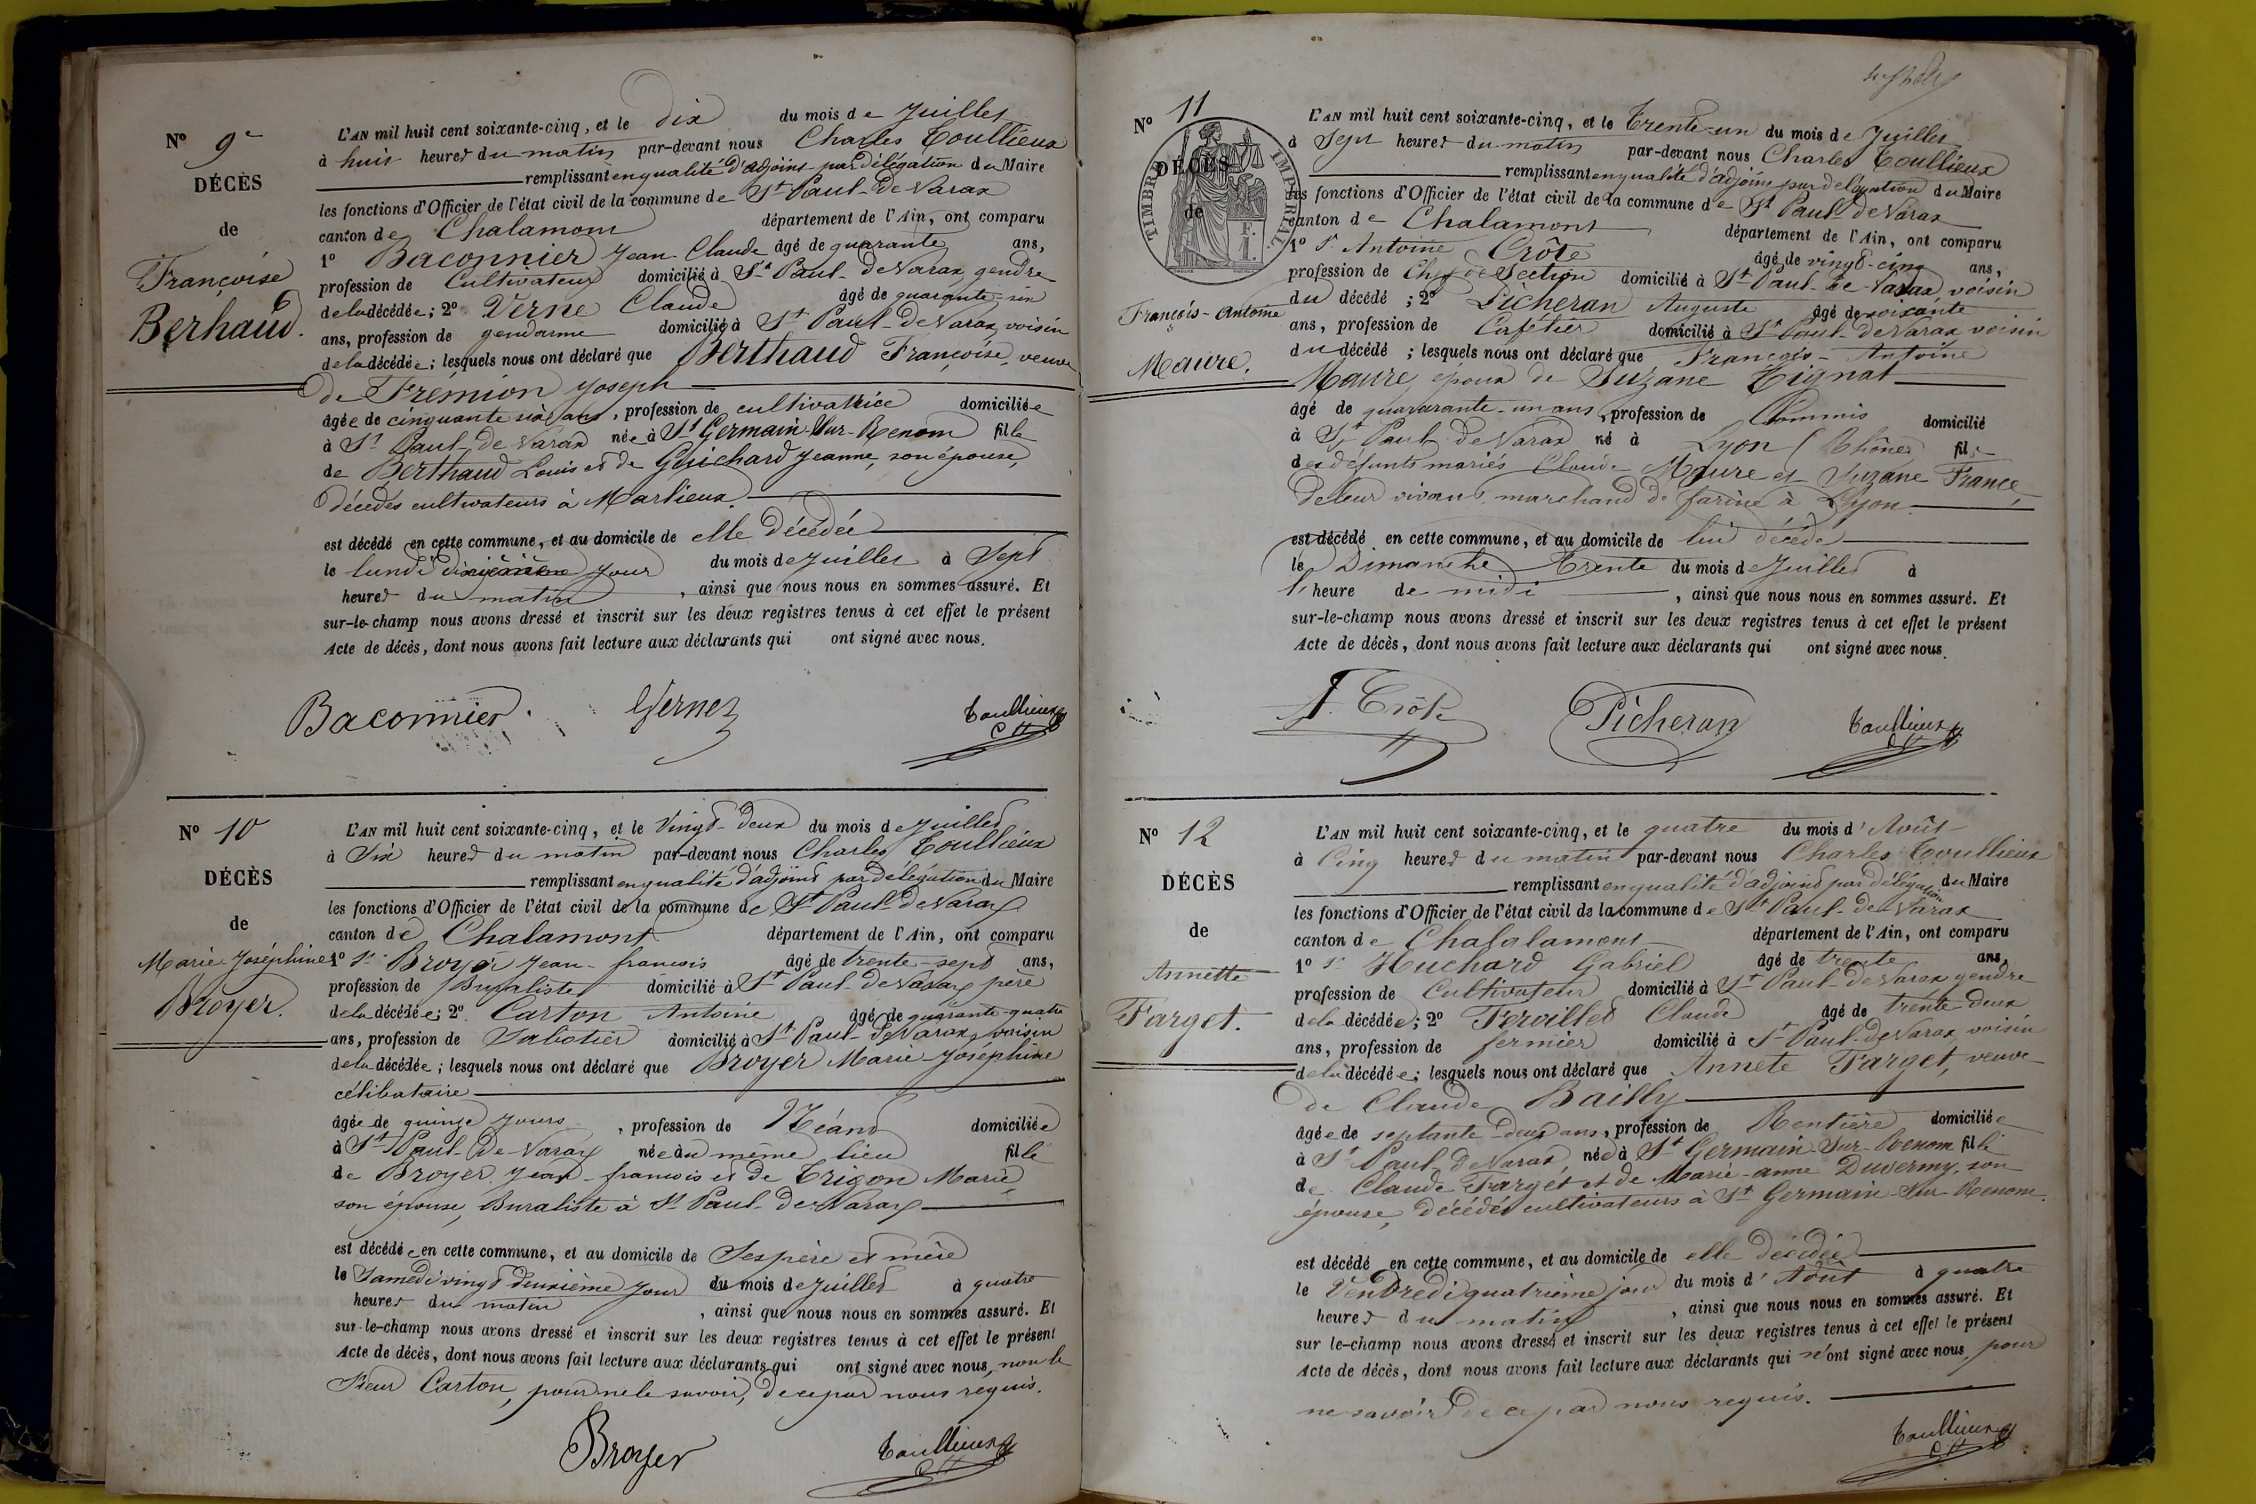 N° 9e
DÉCÈS
de
Françoise
Berhaud.
L'AN mil huit cent soixante-cinq, et le dix du mois de Juillet
à huit heures du matin par-devant nous Charles Toullieux
remplissant en qualité d'adjoint par délégation du Maire
les fonctions d'Officier de l'état civil de la commune de St Paul-de-Varax
canton de Chalamont département de l'Ain, ont comparu
1° Baconnier Jean Claude âgé de quarante ans,
profession de Cultivateur domicilié à St Paul-de Varax, gendre
de la décédée; 2° Verne Claude âgé de quarante-un
ans, profession de gendarme domicilié à St Paul-de Varax, voisin
de la décédée; lesquels nous ont déclaré que Berthaud Françoise, veuve
de Frémion Joseph
âgée de cinquante six ans, profession de cultivatrice domiciliée
à St Paul-de Varax née à St Germain-Sur-Renom fille
de Berthaud Louis et de Guichard Jeanne, son épouse,
décédés cultivateurs à Marlieux.
est décédé en cette commune, et au domicile de elle décédée
le lundi dixième jour du mois de Juillet à Sept
heures du matin, ainsi que nous nous en sommes assuré. Et
sur-le-champ nous avons dressé et inscrit sur les deux registres tenus à cet effet le présent
Acte de décès, dont nous avons fait lecture aux déclarants qui ont signé avec nous.
Baconnier. Verne Toullieux
CH
N° 10
DÉCÈS
de
Marie Joséphine
Broyer.
L'AN mil huit cent soixante-cinq, et le Vingt-deux du mois de Juillet
à Six heures du matin par-devant nous Charles Toullieux
remplissant en qualité d'adjoint par délégation du Maire
les fonctions d'Officier de l'état civil de la commune de St Paul-de Varax
canton de Chalamont département de l'Ain, ont comparu
1° Sr Broyer Jean-francois âgé de trente-sept ans,
profession de Buraliste domicilié à St Paul-de Varax, père
de la décédée; 2° Carton Antoine âgé de quarante-quatre
ans, profession de Sabotier domicilié à St Paul-de Varax, voisin
de la décédée; lesquels nous ont déclaré que Broyer Marie-Joséphine
célibataire
âgée de quinze jours, profession de Néant domiciliée
à St Paul-de-Varax née au même lieu fille
de Broyer Jean-francois et de Trigon Marie
son épouse, Buraliste à St Paul-de Varax
est décédée en cette commune, et au domicile de Ses père et mère
le Samedi vingt deuxième jour du mois de Juillet à quatre
heures du matin, ainsi que nous nous en sommes assuré. Et
sur-le-champ nous avons dressé et inscrit sur les deux registres tenus à cet effet le présent
Acte de décès, dont nous avons fait lecture aux déclarants qui ont signé avec nous, non le
Sieur Carton, pour ne le savoir, de ce par nous requis.
Broyer Toullieux
CH
N° 11
DÉCÈS
de
TIMBRE IMPÉRIAL
François-Antoine
Maure.
L'AN mil huit cent soixante-cinq, et le Trente-un du mois de Juillet
à Sept heures du matin par-devant nous Charles Toullieux
remplissant en qualité d'adjoint par délégation du Maire
les fonctions d'Officier de l'état civil de la commune de St Paul-de Varax
canton de Chalamont département de l'Ain, ont comparu
1° Sr Antoine Crôte âgé de vingt-cinq ans,
profession de Chef de Section domicilié à St Paul-de-Varax voisin
du décédé; 2° Picheran Auguste âgé de soixante
ans, profession de Cafétier domicilié à St Paul-de Varax voisin
du décédé; lesquels nous ont déclaré que François-Antoine
Maure, époux de Suzane Tignat
âgé de quararante-un ans, profession de Commis domicilié
à St Paul-de Varax né à Lyon (Rhône) fils
des défunts mariés Claude Maure et Suzane France,
de leur vivant marchand de farine à Lyon.
est décédé en cette commune, et au domicile de lui décédé
le Dimanche Trente du mois de Juillet à
l'heure de midi, ainsi que nous nous en sommes assuré. Et
sur-le-champ nous avons dressé et inscrit sur les deux registres tenus à cet effet le présent
Acte de décès, dont nous avons fait lecture aux déclarants qui ont signé avec nous.
A. Crôte Picheran Toullieux
CH
N° 12
DÉCÈS
de
Annette
Farget.
L'AN mil huit cent soixante-cinq, et le quatre du mois d'Août
à Cinq heures du matin par-devant nous Charles Toullieux
remplissant en qualité d'adjoint par délégation du Maire
les fonctions d'Officier de l'état civil de la commune de St Paul-de-Varax
canton de Chalalamont département de l'Ain, ont comparu
1° Sr Huchard Gabriel âgé de trente ans,
profession de Cultivateur domicilié à St Paul-de Varax, gendre
de la décédée; 2° Fervillet Claude âgé de trente-deux
ans, profession de fermier domicilié à St Paul-de Varax, voisin
de la décédée; lesquels nous ont déclaré que Annete Farget, veuve
de Claude Bailly
âgée de septante-deux ans, profession de Rentière domiciliée
à St Paul-de Varax née à St Germain-Sur-Renom fille
de Claude Farget et de Marie-anne Duvermy, son
épouse, décédés cultivateurs à St Germain-Sur-Renom.
est décédé en cette commune, et au domicile de elle décédée
le Vendredi quatrième jour du mois d'Août à quatre
heures du matin, ainsi que nous nous en sommes assuré. Et
sur le-champ nous avons dressé et inscrit sur les deux registres tenus à cet effet le présent
Acte de décès, dont nous avons fait lecture aux déclarants qui n'ont signé avec nous, pour
ne savoir de ce par nous requis.
Toullieux
CH